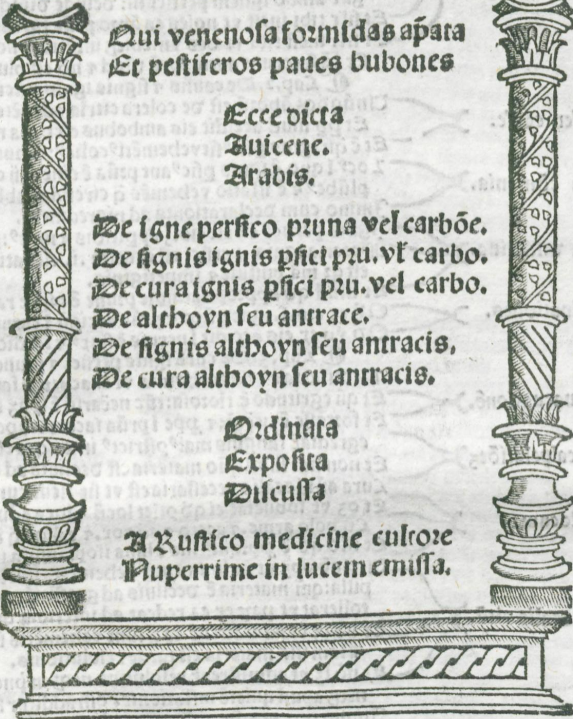 Qui venenosa formidas ap̃ata
Et pestiferos paues bubones
Ecce dicta
Auicene.
Arabis.
De igne persico pruna vel carbõe.
De signis ignis ꝑsici pru. vł carbo.
De cura ignis ꝑsici pru. vel carbo.
De althoyn seu antrace.
De signis althoyn seu antracis.
De cura althoyn seu antracis.
Ordinata
Exposita
Discussa
A Rustico medicine cultore
Nuperrime in lucem emissa.